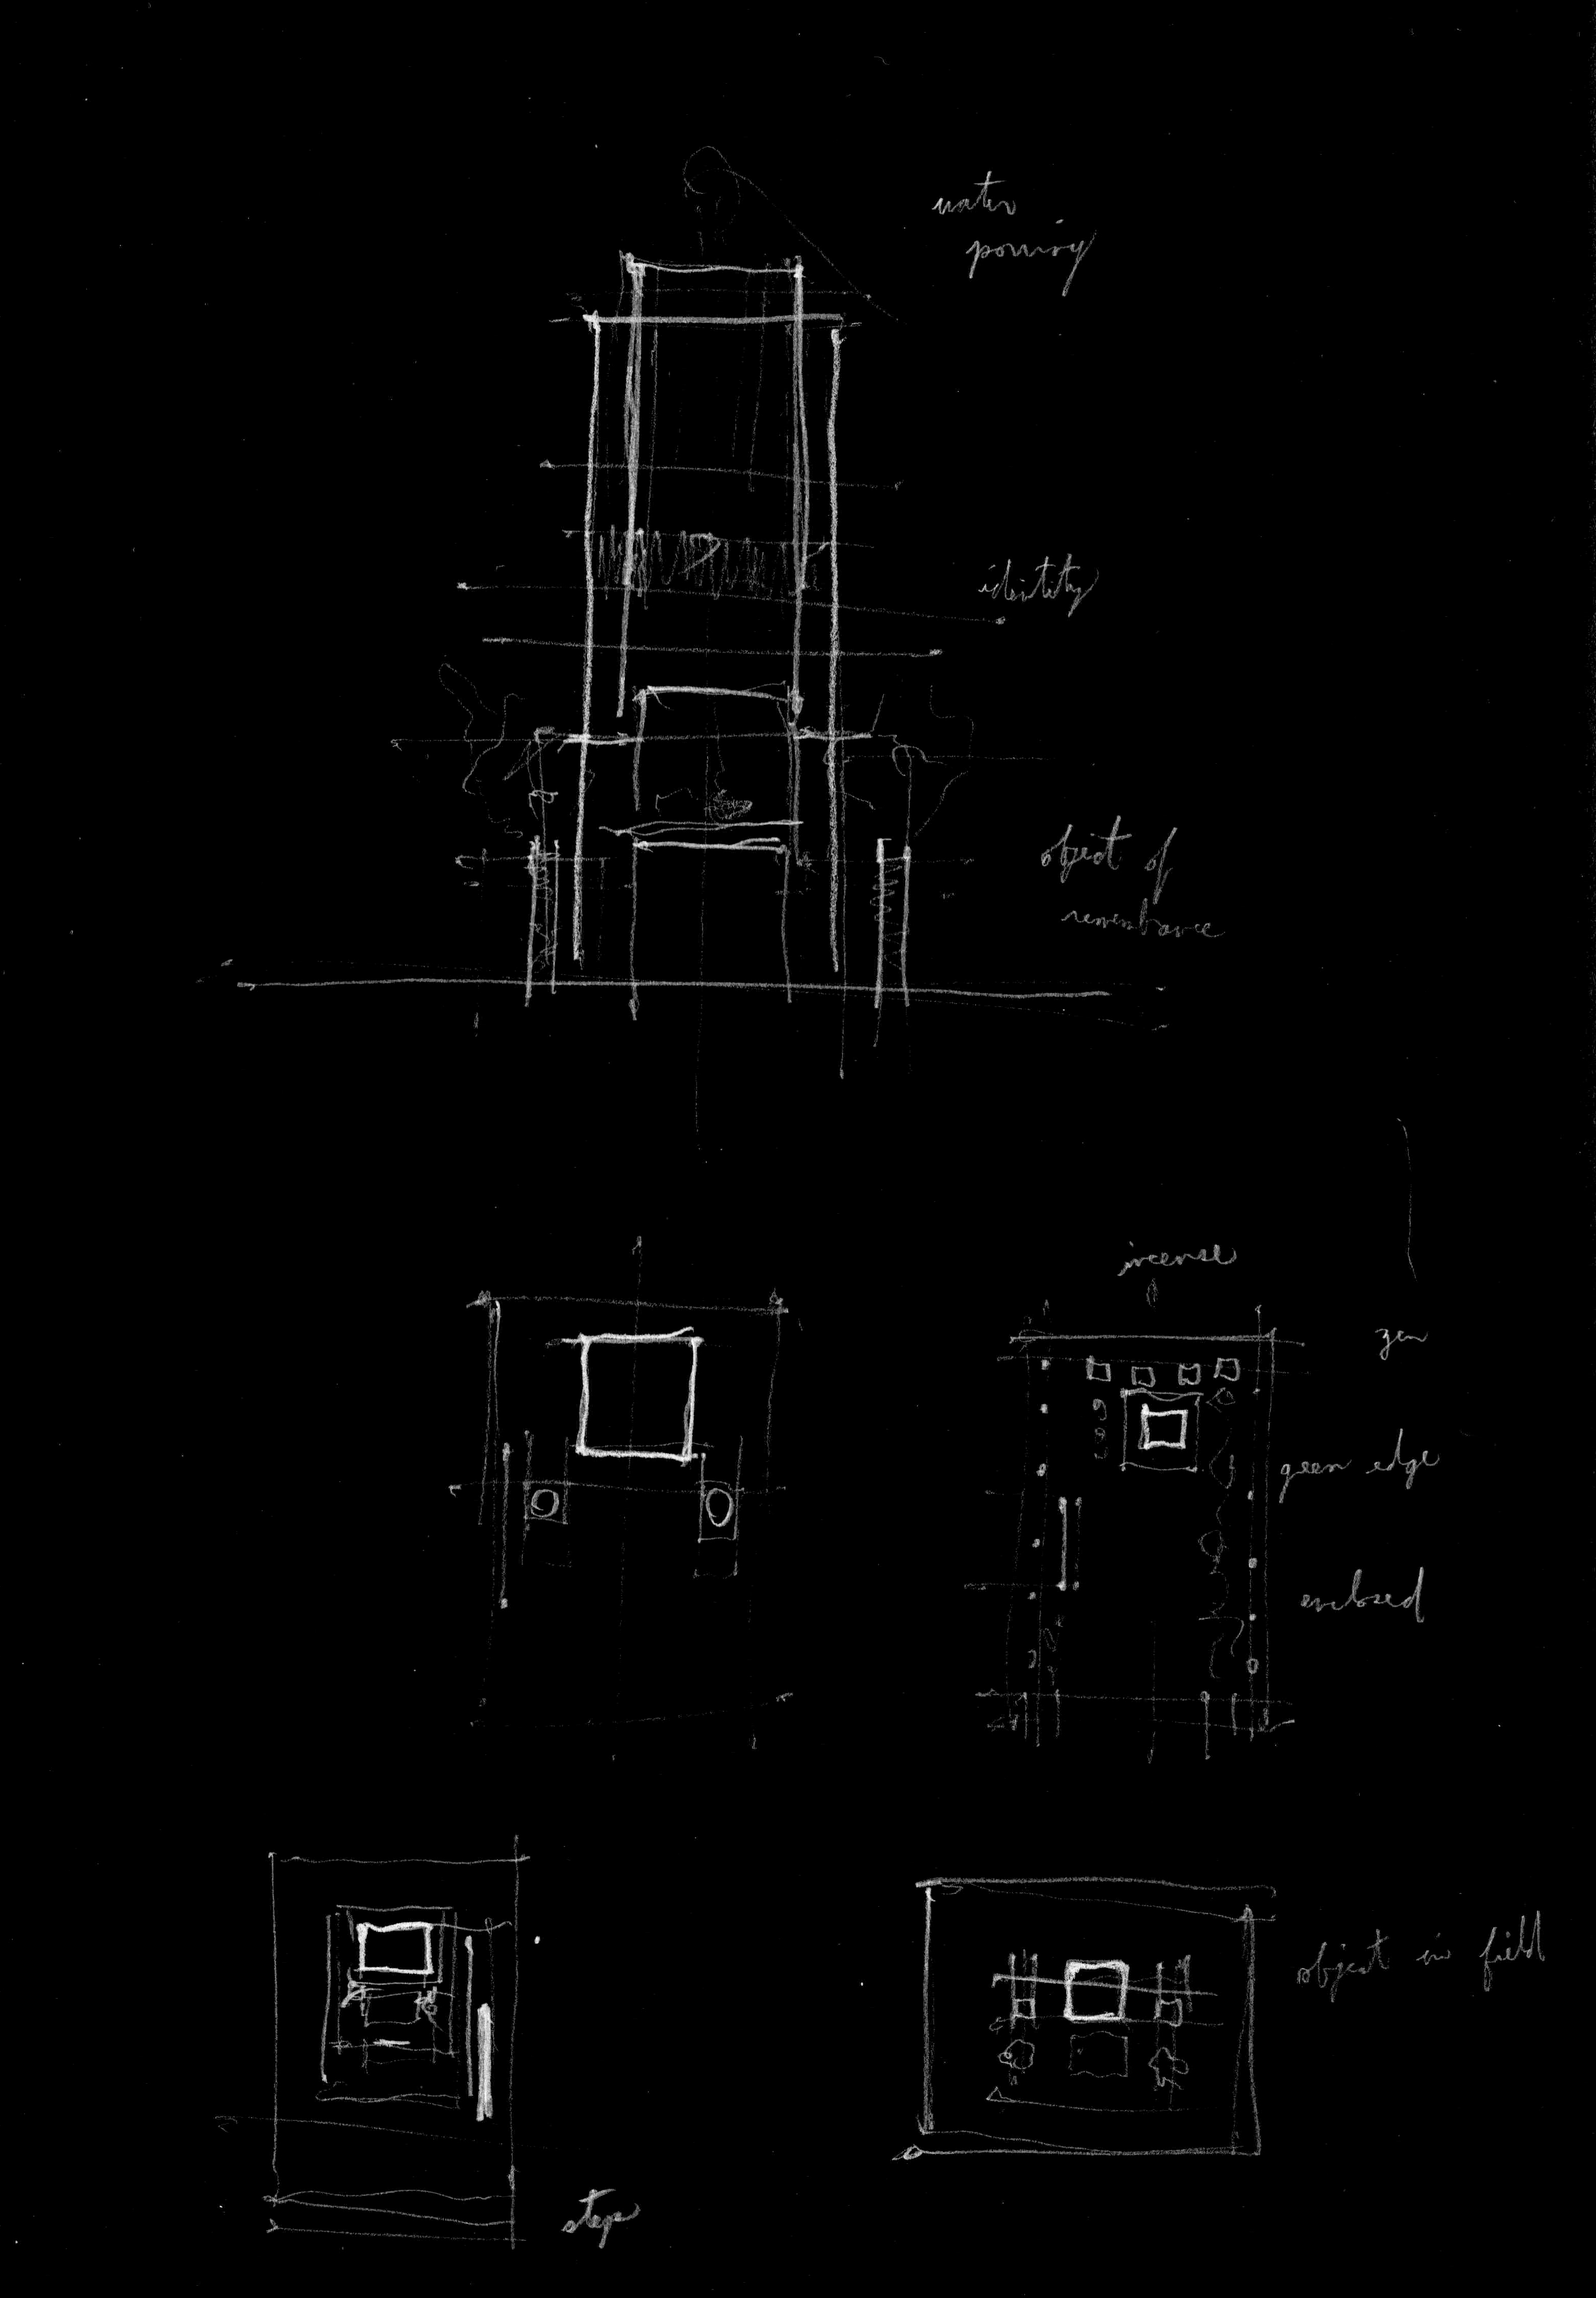 water
pouring
identity
object of
remembrance
incense
zen
green edge
enclosed
object in field
steps